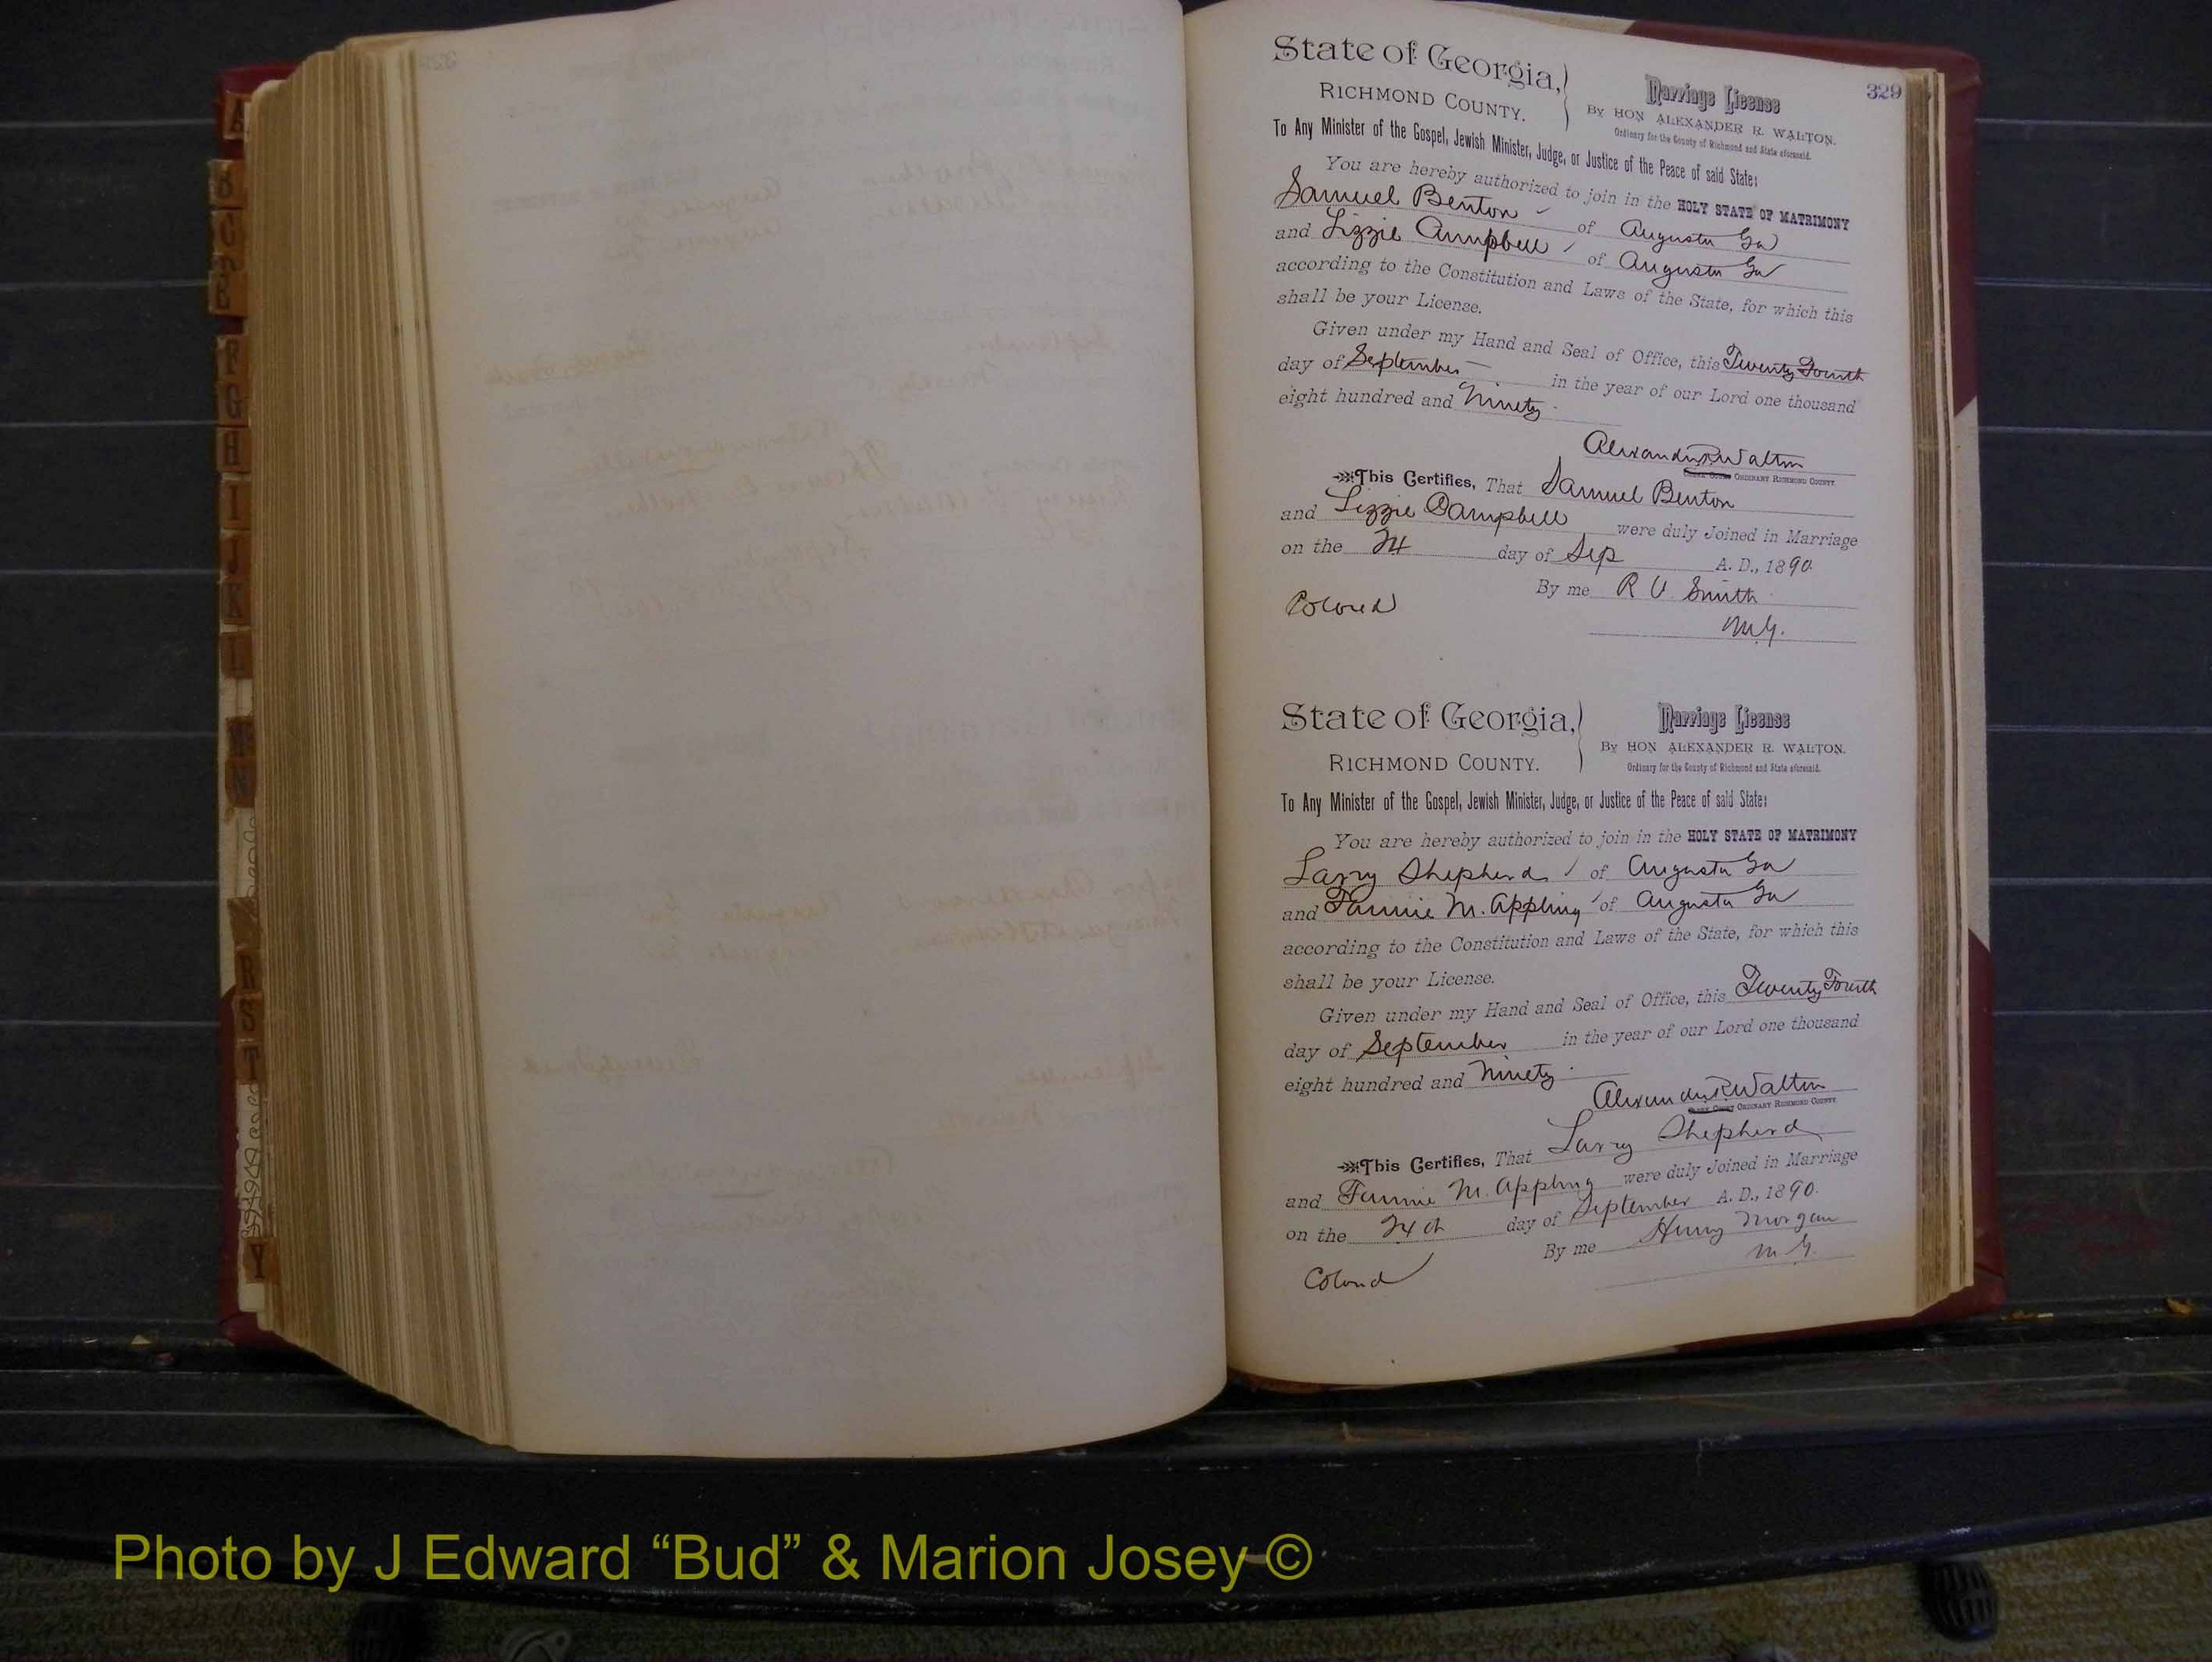 329
State of Georgia,
RICHMOND COUNTY.
Marriage License
By HON ALEXANDER R. WALTON.
Ordinary for the County of Richmond and State aforesaid.
To Any Minister of the Gospel, Jewish Minister, Judge, or Justice of the Peace of said State:
You are hereby authorized to join in the HOLY STATE OF MATRIMONY
Samuel Benton of Augusta Ga
and Lizzie Campbell of Augusta Ga
according to the Constitution and Laws of the State, for which this
shall be your License.
Given under my Hand and Seal of Office, this Twenty Fourth
day of September in the year of our Lord one thousand
eight hundred and Ninety
Alexander R Walton
ORDINARY RICHMOND COUNTY.
This Certifies, That Samuel Benton
and Lizzie Campbell were duly Joined in Marriage
on the 24 day of Sep A. D., 1890
By me R V Smith
M.G.
Colored
State of Georgia,
RICHMOND COUNTY.
Marriage License
By HON ALEXANDER R. WALTON.
Ordinary for the County of Richmond and State aforesaid.
To Any Minister of the Gospel, Jewish Minister, Judge, or Justice of the Peace of said State:
You are hereby authorized to join in the HOLY STATE OF MATRIMONY
Larry Shepherd of Augusta Ga
and Fannie M. Appling of Augusta Ga
according to the Constitution and Laws of the State, for which this
shall be your License.
Given under my Hand and Seal of Office, this Twenty Fourth
day of September in the year of our Lord one thousand
eight hundred and Ninety.
Alexander R Walton
ORDINARY RICHMOND COUNTY.
This Certifies, That Larry Shepherd
and Fannie M. Appling were duly Joined in Marriage
on the 24th day of September A. D., 1890.
By me Henry Morgan
M G.
Colored
A
B
C
F
G
H
I
J
K
L
M
N
R
S
T
Y
Photo by J Edward “Bud” & Marion Josey ©